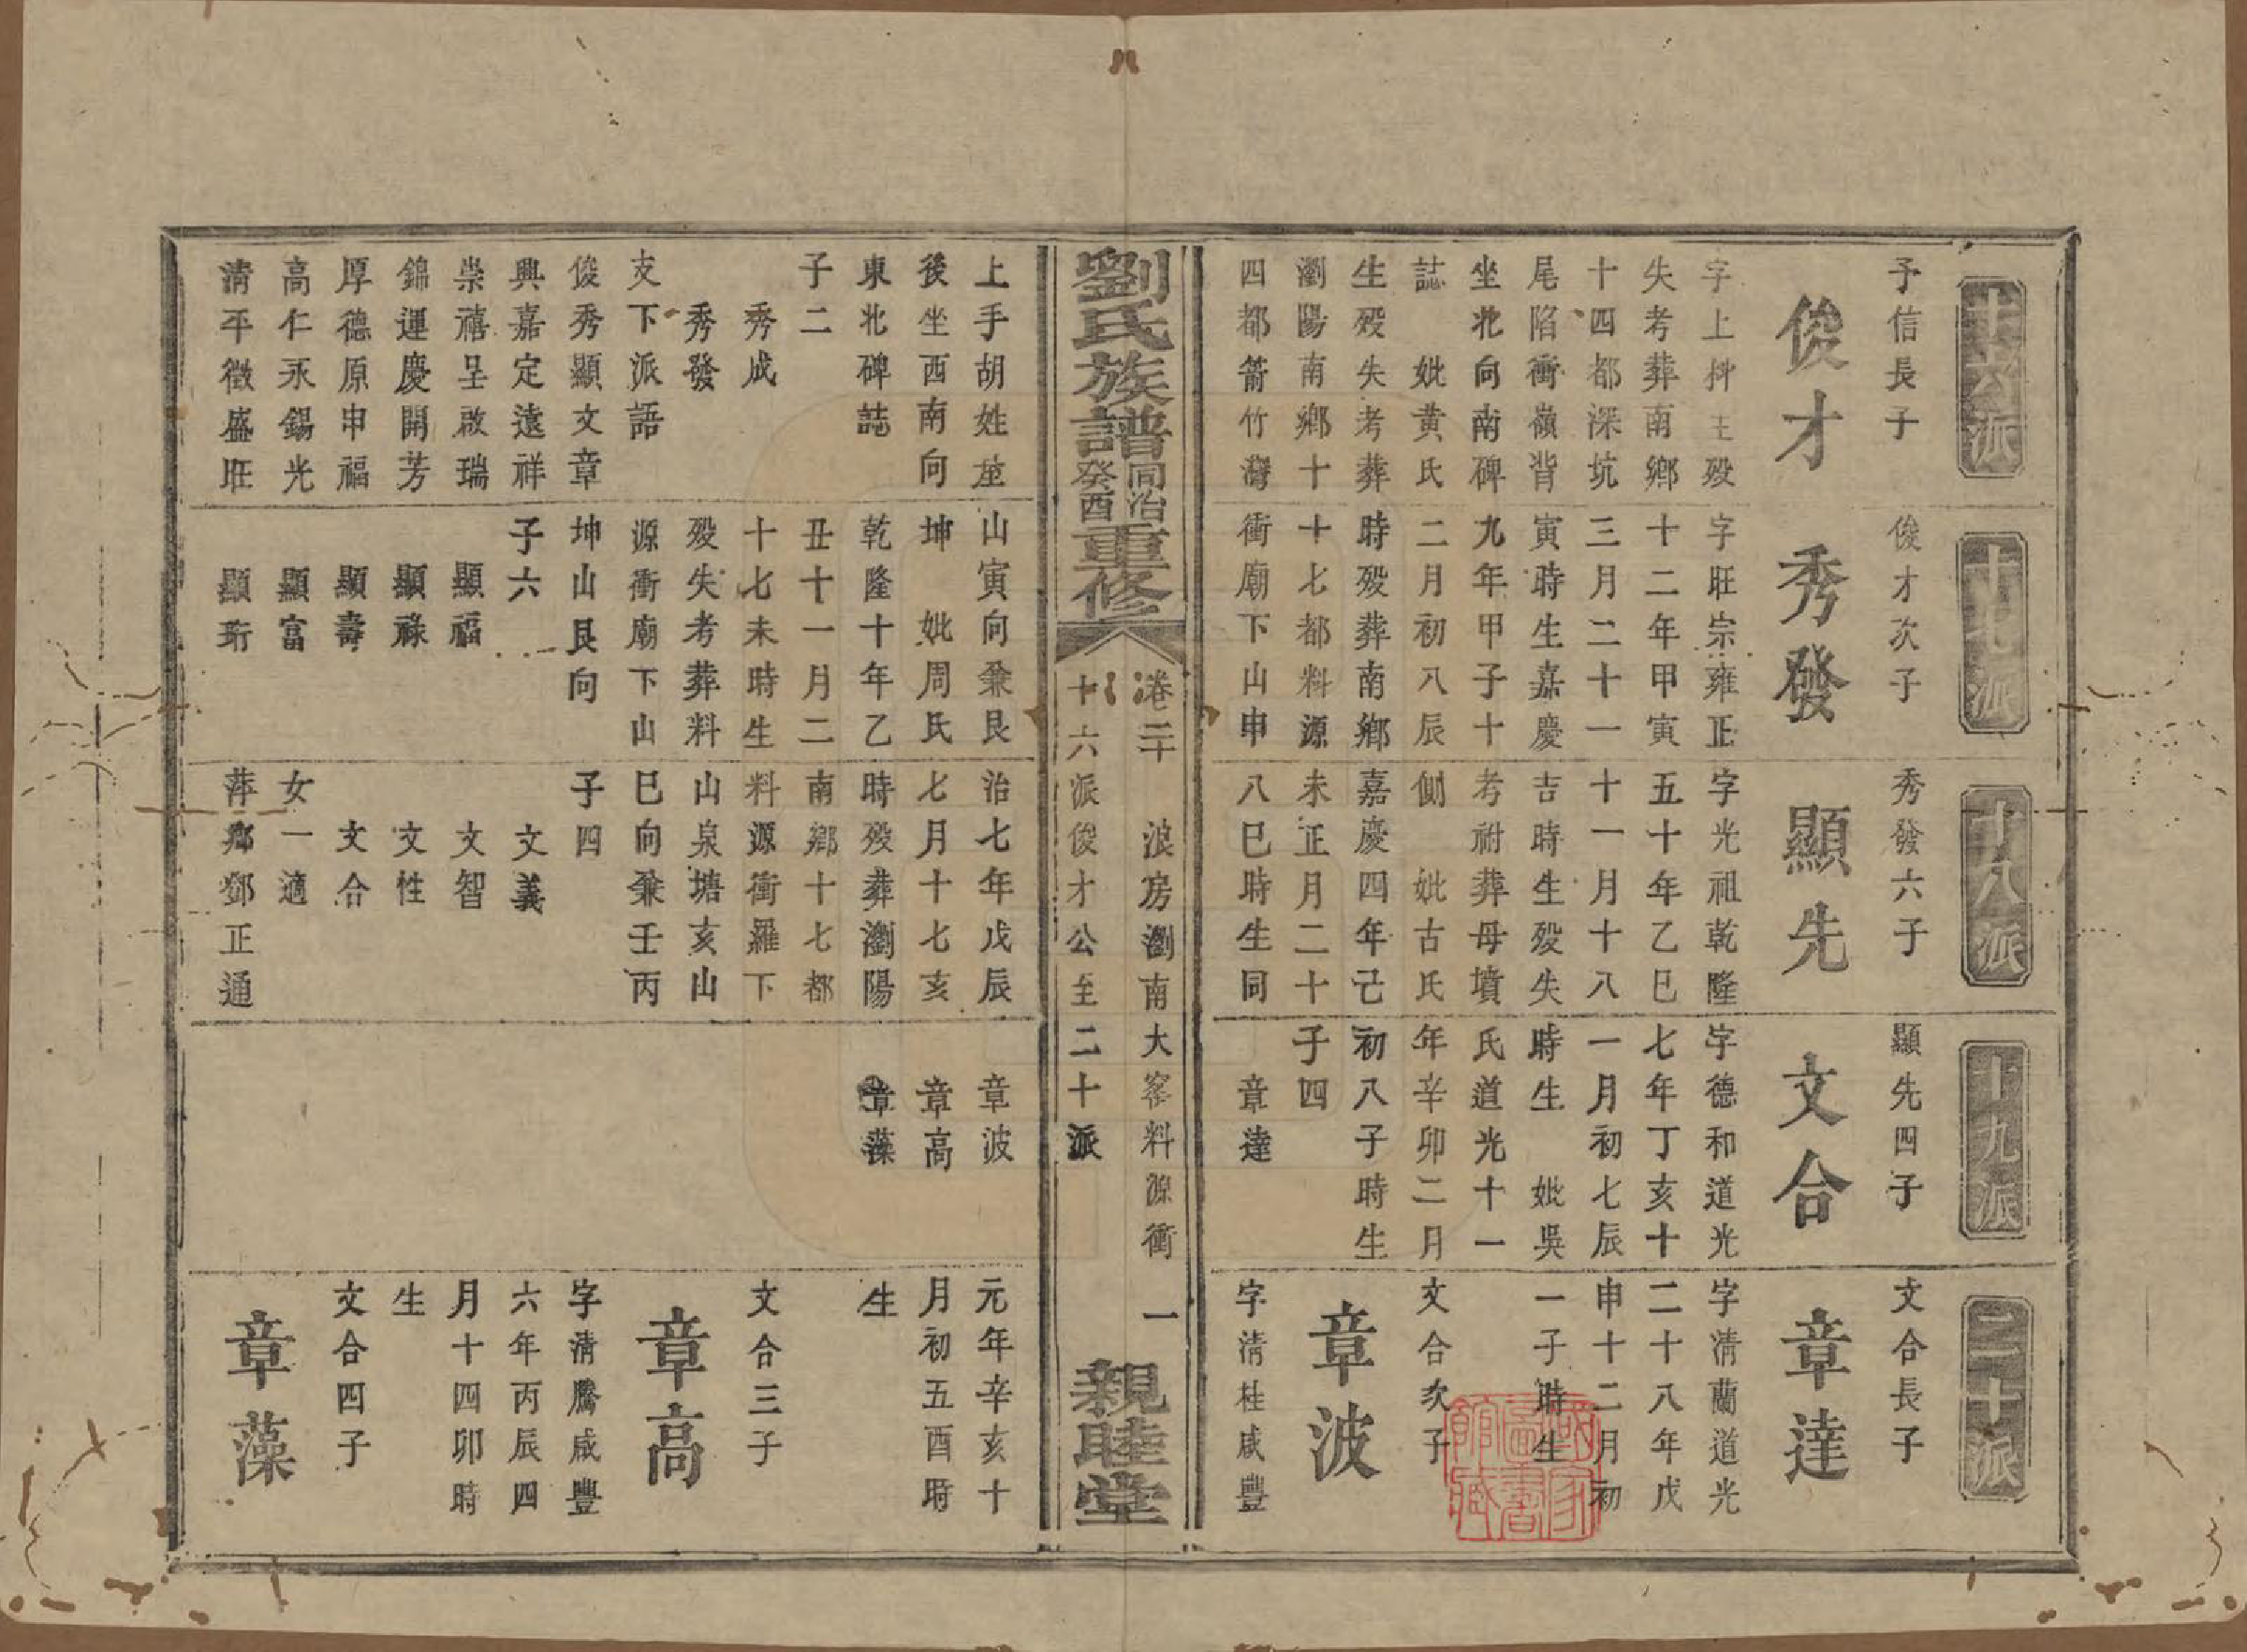 十六派
予信長子
俊才
字上拱 王歿
失考葬南鄉
十四都深坑
尾陷衝嶺背
坐北向南碑
誌 妣黄氏
生歿失考葬
瀏陽南鄉十
四都箭竹灣
上手胡姓塋
後坐西南向
東北碑誌
子二
秀成
秀發
支下派語
俊秀顯文章
興嘉定遠祥
崇禧呈啟瑞
錦運慶開芳
厚德原申福
高仁永錫光
清平徵盛旺
十七派
俊才次子
秀發
字旺宗雍正
十二年甲寅
三月二十一
寅時生嘉慶
九年甲子十
二月初八辰
時歿葬南鄉
十七都料源
衝廟下山申
山寅向兼艮
坤 妣周氏
乾隆十年乙
丑十一月二
十七未時生
歿失考葬料
源衝廟下山
坤山艮向
子六
顯福
顯祿
顯壽
顯富
顯珩
十八派
秀發六子
顯先
字光祖乾隆
五十年乙巳
十一月十八
吉時生歿失
考祔葬母墳
側 妣古氏
嘉慶四年己
未正月二十
八巳時生同
治七年戊辰
七月十七亥
時歿葬瀏陽
南鄉十七都
料源衝羅下
山泉塘亥山
巳向兼壬丙
子四
文義
文智
文性
文合
女一適
萍鄉鄧正通
十九派
顯先四子
文合
字德和道光
七年丁亥十
一月初七辰
時生 妣吳
氏道光十一
年辛卯二月
初八子時生
子四
章達
章波
章高
章藻
二十派
文合長子
章達
字清蘭道光
二十八年戊
申十二月初
一子時生
文合次子
章波
字清桂咸豐
元年辛亥十
月初五酉時
生
文合三子
章高
字清騰咸豐
六年丙辰四
月十四卯時
生
文合四子
章藻
劉氏族譜同治癸酉重修
卷二十 浪房瀏南大窰料源衝 一
十六派俊才公至二十派
親睦堂
國家圖書館藏